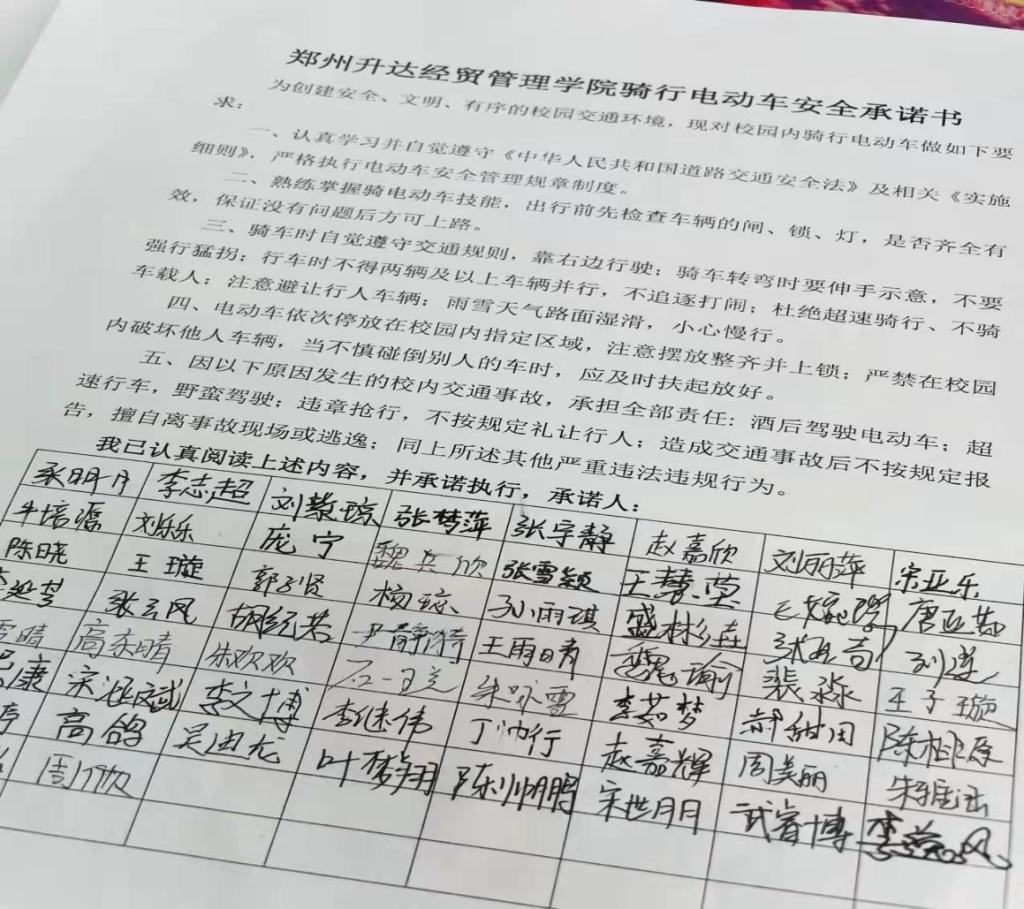 郑州升达经贸管理学院骑行电动车安全承诺书
为创建安全、文明、有序的校园交通环境，现对校园内骑行电动车做如下要
求：
一、认真学习并自觉遵守《中华人民共和国道路交通安全法》及相关《实施
细则》，严格执行电动车安全管理规章制度。
二、熟练掌握骑电动车技能，出行前先检查车辆的闸、锁、灯，是否齐全有
效，保证没有问题后方可上路。
三、骑车时自觉遵守交通规则，靠右边行驶；骑车转弯时要伸手示意，不要
强行猛拐；行车时不得两辆及以上车辆并行，不追逐打闹；杜绝超速骑行、不骑
车载人；注意避让行人车辆；雨雪天气路面湿滑，小心慢行。
四、电动车依次停放在校园内指定区域，注意摆放整齐并上锁；严禁在校园
内破坏他人车辆，当不慎碰倒别人的车时，应及时扶起放好。
五、因以下原因发生的校内交通事故，承担全部责任：酒后驾驶电动车；超
速行车，野蛮驾驶；违章抢行，不按规定礼让行人；造成交通事故后不按规定报
告，擅自离事故现场或逃逸；同上所述其他严重违法违规行为。
我已认真阅读上述内容，并承诺执行，承诺人：
李志超 刘慧琼 张梦萍 张宇静 赵嘉欣 刘丽萍 宗亚乐
牛培源 刘乐乐 庞宁 魏兵欣 张雪颖 王慧莹
陈日晓 王璇 郭子贤 杨琼 孙雨琪
张云风 王雨晴 王子璇
高未晴 朱欢欢 朱咏雪 李茹梦
李文博 李继伟 丁帅行 赵嘉辉 周美丽
高鸽 叶梦翔 陈帅鹏 宋世月月 武睿博
周欣